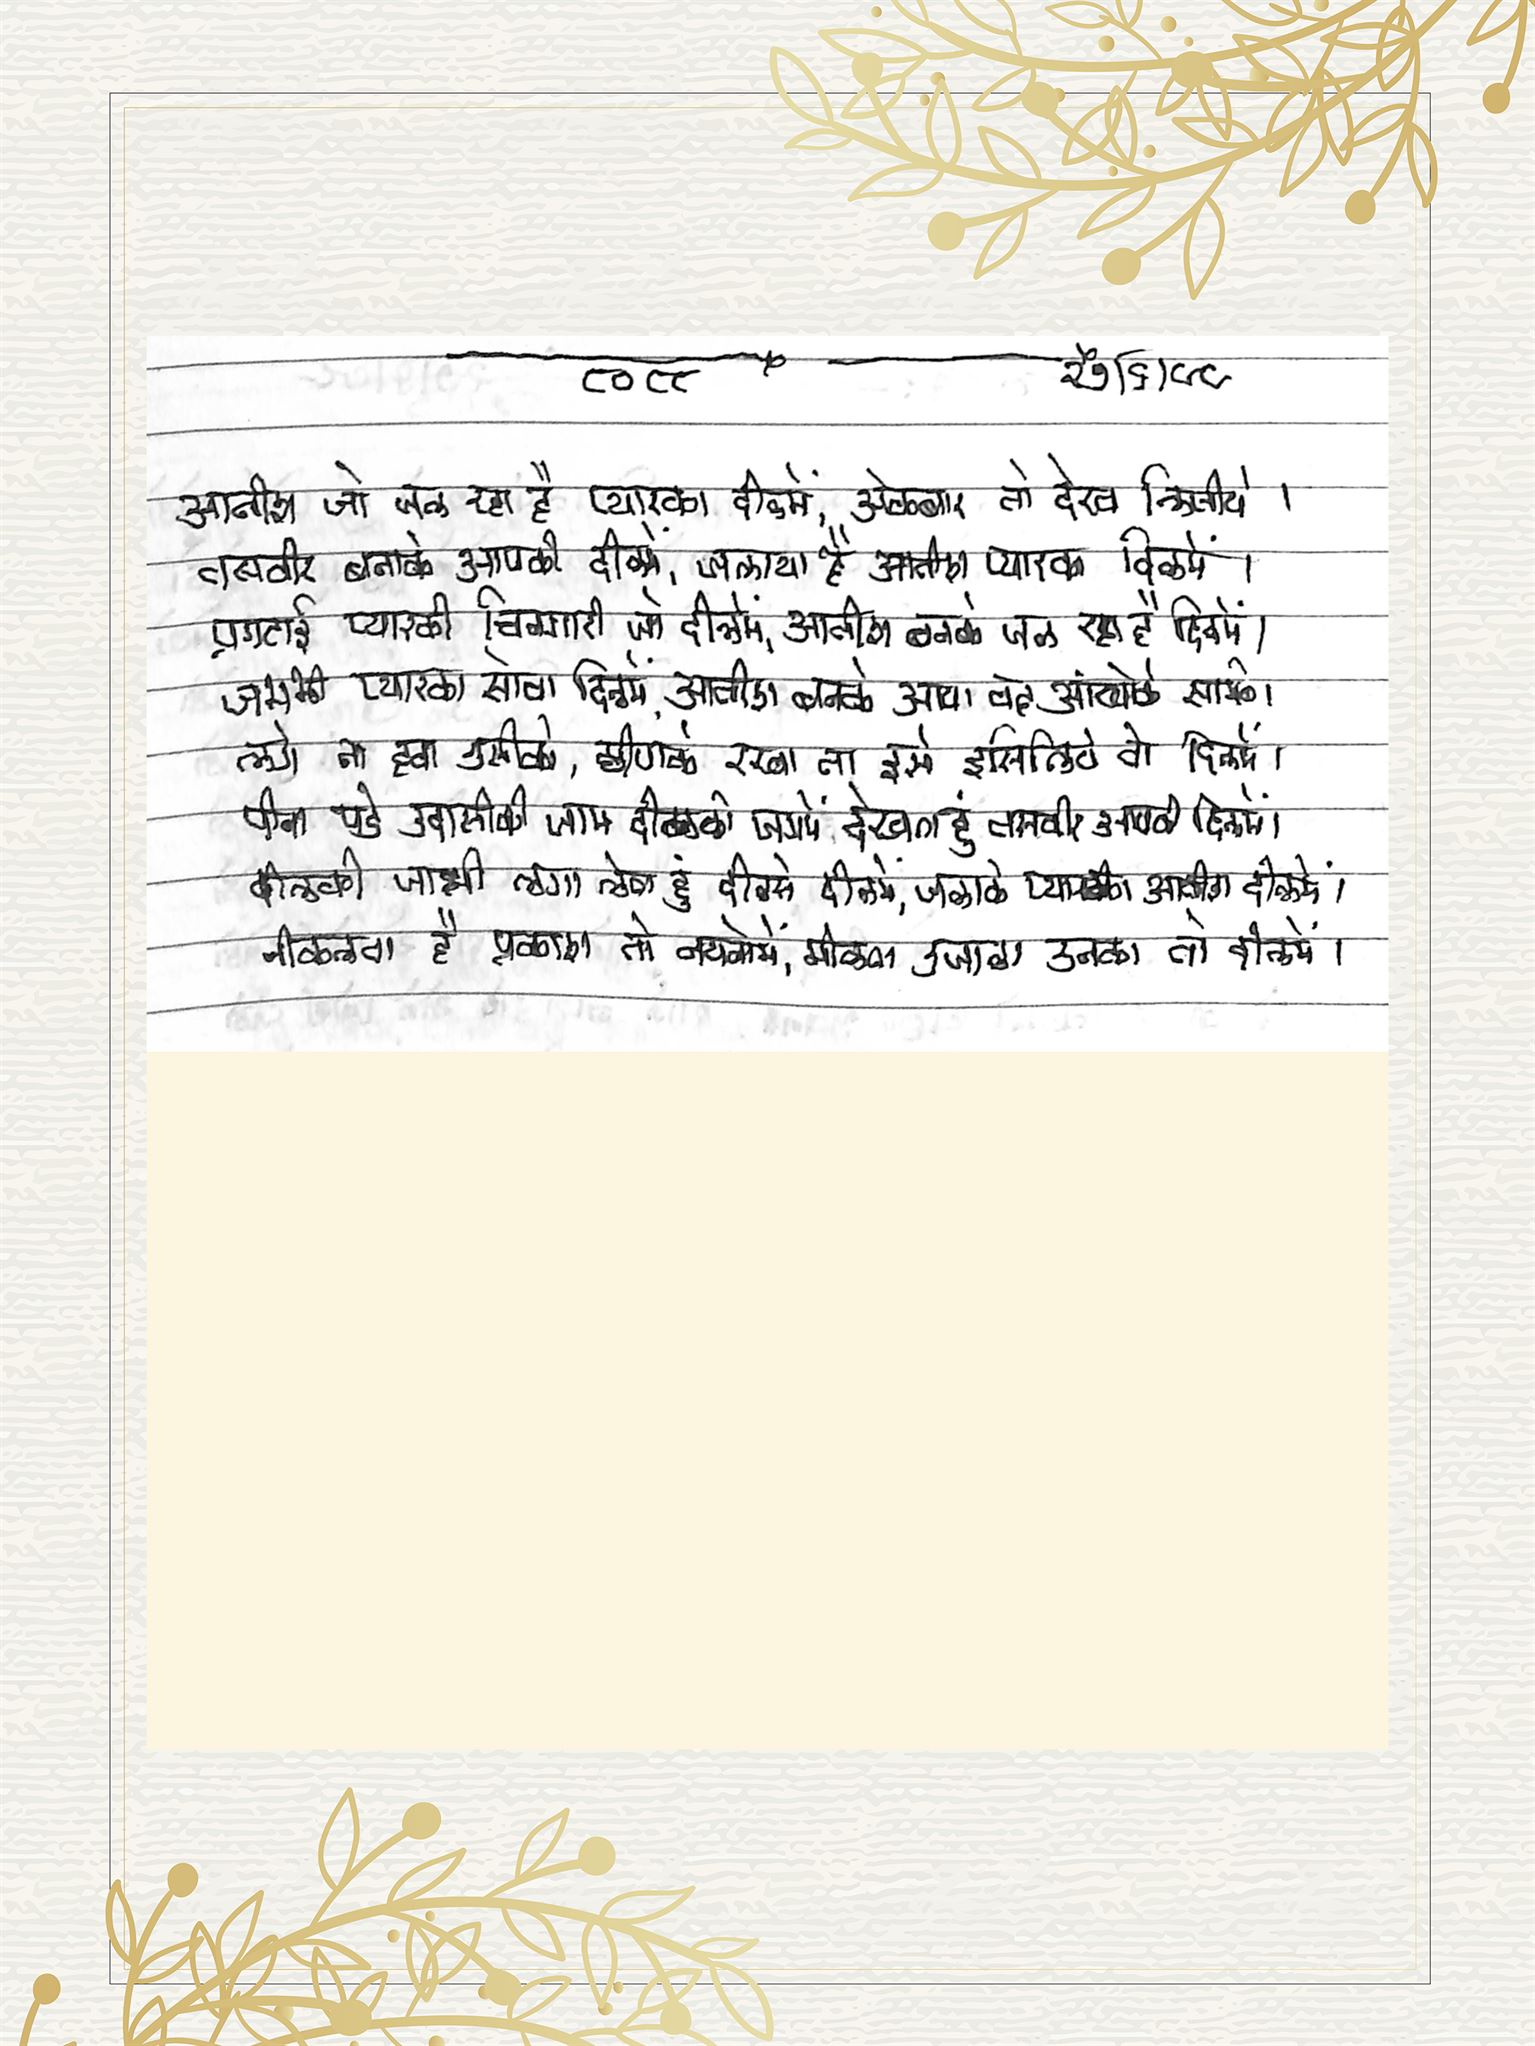 ८०८८ २७/६/८८
आतीश जो जल रहा है प्यारका दीलमें, अेकबार तो देख लिजीये ।
तसवीर बनाके आपकी दीलमें, जलाया है आतीश प्यारका दिलमें ।
प्रगटाई प्यारकी चिनगारी जो दीलमें, आतीश बनके जल रहा है दिलमें ।
जभभी प्यारका सोचा दिलमें, आतीश बनके आया वह आंखोके सामने ।
लगे ना हवा उसीको, छीपाके रखा था इसे इसिलिये तो दिलमें ।
पीना पडे उदासीकी जाम दीलको जगमें, देखता हुं तसवीर आपकी दिलमें ।
दीलकी लगा लेता हुं दीलसे दीलमें, जलाके प्यारका आतीश दीलमें ।
नीकलता है प्रकाश तो नयनोमें, मीलता उजाला उनका तो दीलमें ।